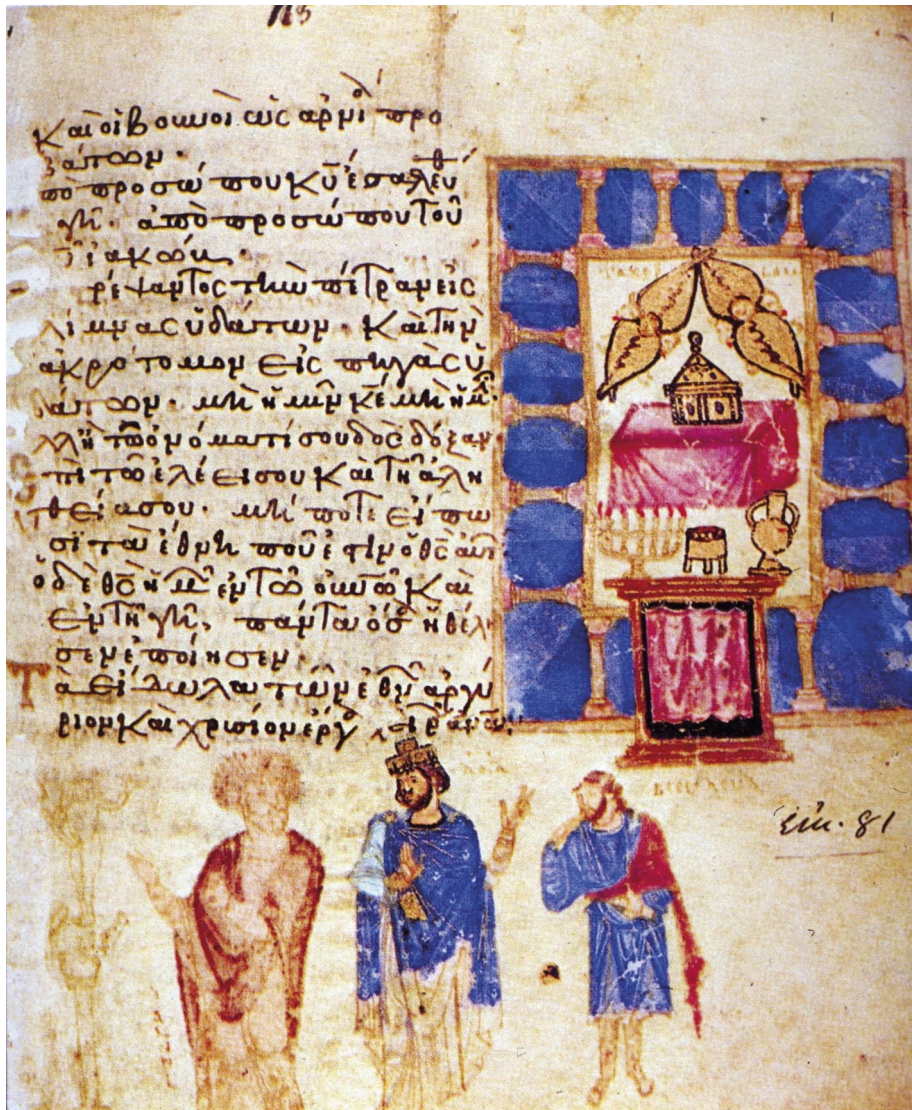 Καὶ οἱ βουνοὶ ὡς ἀρνί προ
βάτων·
πὸ προσώπου κυ ἐσαλεύθ
γῆ· ἀπὸ προσώπου τοῦ
ἰακώβ·
ρέψαντος τὴν πέτραν εἰς
λίμνας ὑδάτων· καὶ τὴν
ἀκρότομον εἰς πηγὰς ὑ
δάτων· μὴ ἡμῖν κε μὴ ἡμῖ·
λλ' ἢ τῷ ὀνόματί σου δὸς δόξαν
πὶ τῷ ἐλέει σου καὶ τῇ ἀλη
θεία σου· μή ποτε εἴπω
σι τὰ ἔθνη ποῦ ἐστιν ὁ θς αὐτ
ὁ δὲ θς ἡμ ἐν τῷ οὐνῶ καὶ
ἐν τῇ γῇ, πάντα ὅσ ἠθέλη
σεν ἐποίησεν·
Τὰ εἴδωλα τῶν ἐθν ἀργύ
ριον καὶ χρυσίον ἔργ χειρ ἀνων·
Εἰκ. 81